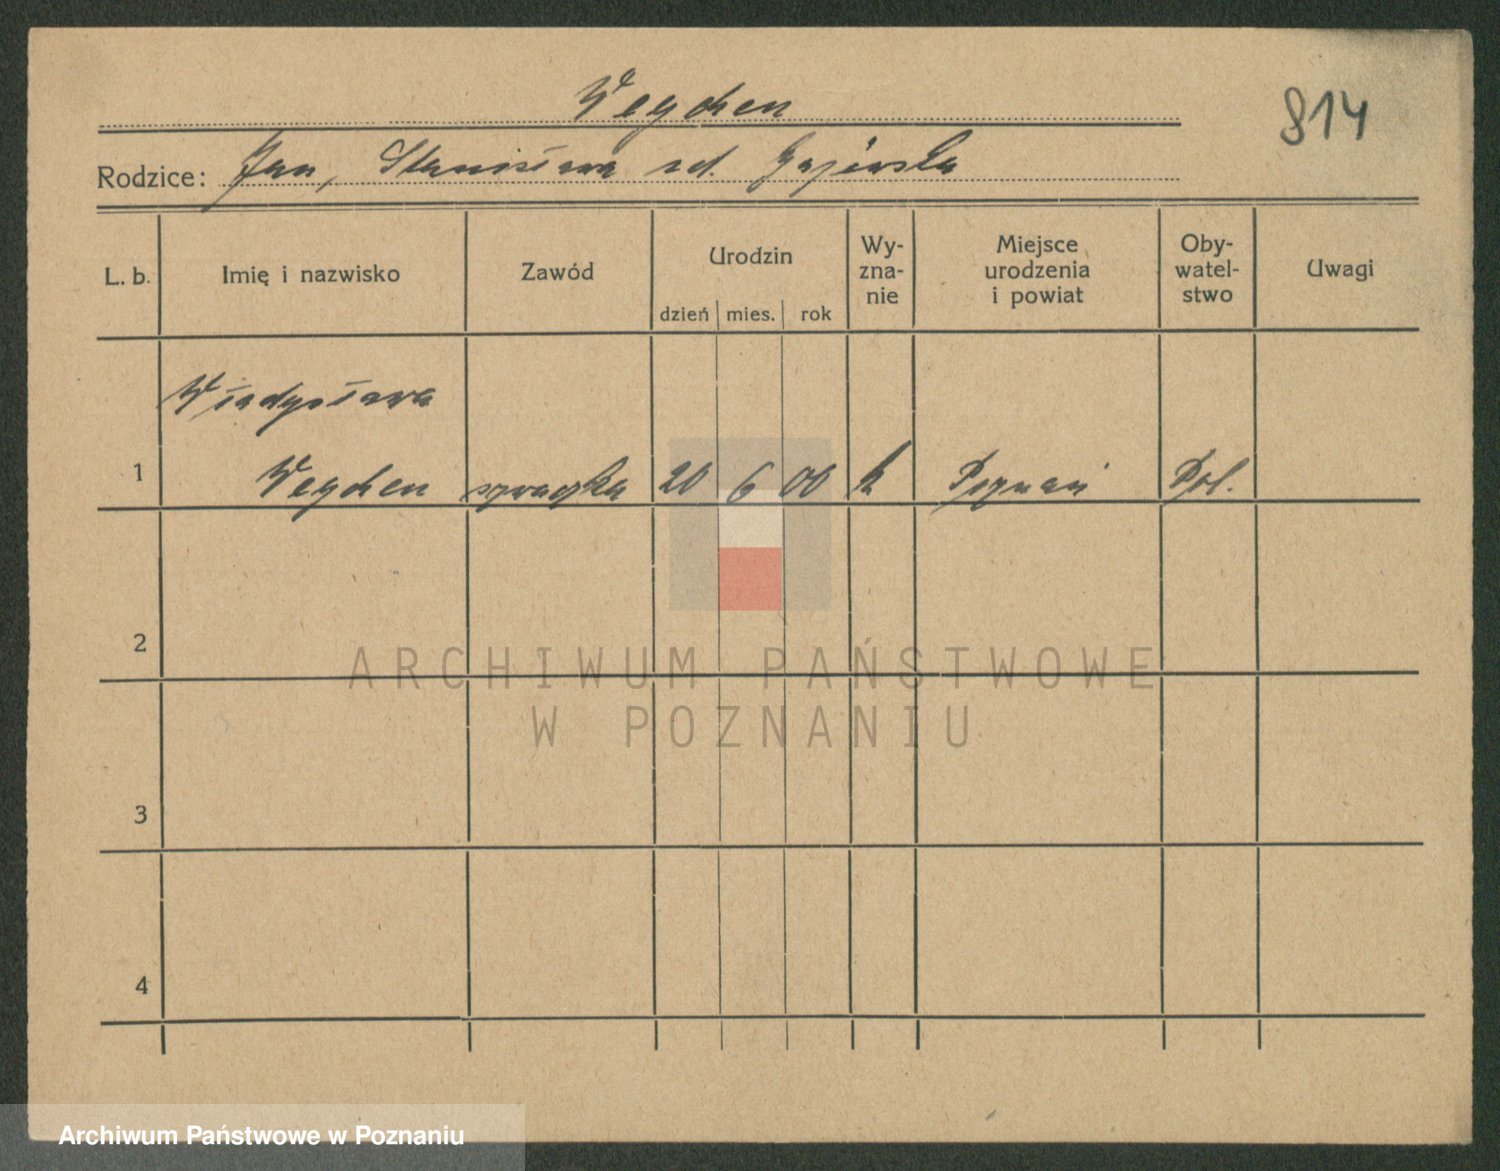 Wegchen
814
Rodzice: Jan, Stanisława zd. Gajewska
L. b. Imię i nazwisko Zawód Urodzin dzień mies. rok Wy-zna-nie Miejsce urodzenia i powiat Oby-watel-stwo Uwagi
Władysława
1 Wegchen 20 6 00 k Poznań Pol.
2
ARCHIWUM PAŃSTWOWE
W POZNANIU
3
4
Archiwum Państwowe w Poznaniu